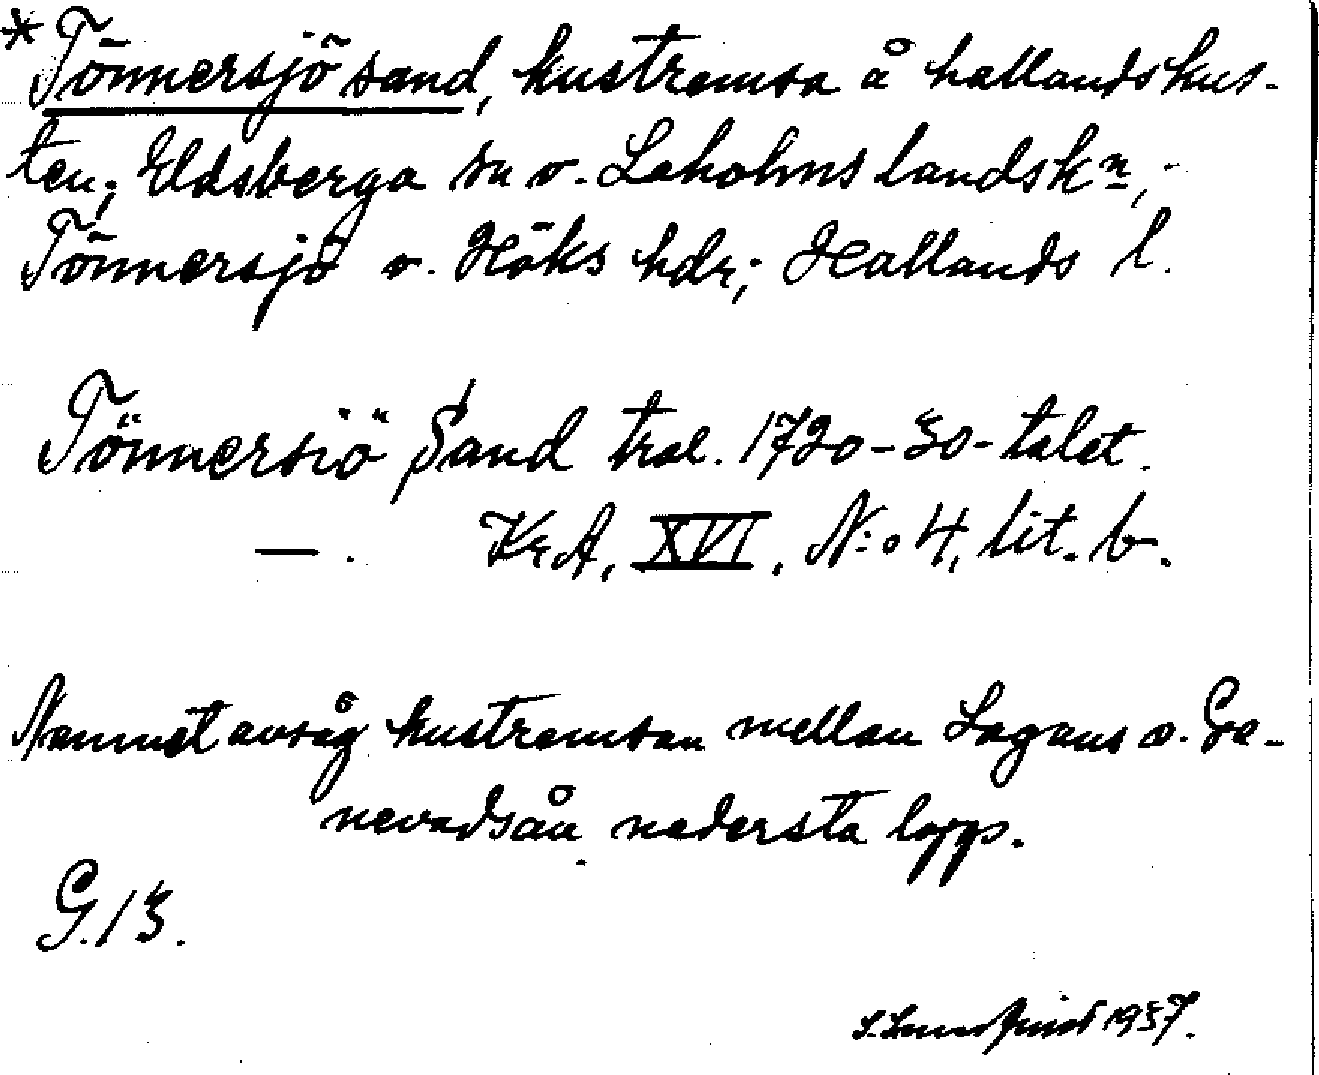 *Tönnersjö sand, kustremsa å hallandskus-
ten; Eldsberga sn o. Laholms landskn,
Tönnersjö o. Höks hdr; Hallands l.
Tönnersiö Sand tral. 1720-30-talet.
— . KrA, XVI, N:o 4, lit. b.
Namnet avsåg kustremsan mellan Lagans o. Ge-
nevadsån nedersta lopp.
G. 13.
1937.